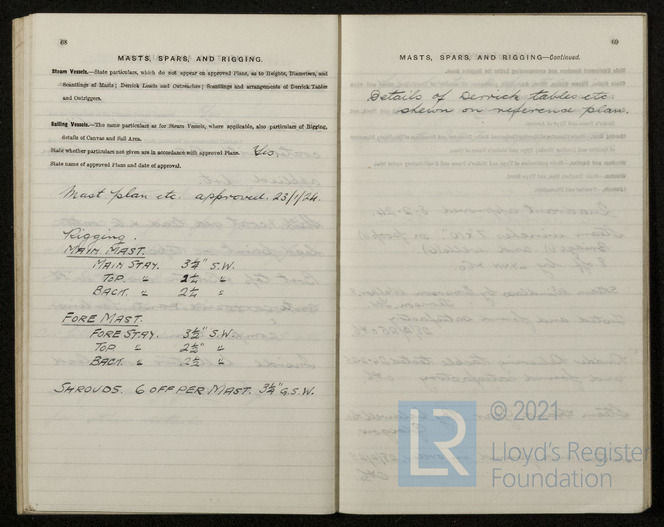 68
MASTS, SPARS, AND RIGGING.
Steam Vessels.—State particulars, which do not appear on approved Plans, as to Heights, Diameters, and
Scantlings of Masts; Derrick Loads and Outreaches; Scantlings and arrangements of Derrick Tables
and Outriggers.
Sailing Vessels.—The same particulars as for Steam Vessels, where applicable, also particulars of Rigging,
details of Canvas and Sail Area.
State whether particulars not given are in accordance with approved Plans. Yes
State name of approved Plans and date of approval.
Mast plan etc. approved. 23/1/24.
Rigging.
MAIN MAST.
MAIN STAY. 3¼" S.W.
TOP. " 2¼" "
BACK. " 2¼" "
FORE MAST.
FORE STAY. 3½" S.W.
TOP " 2½" "
BACK " 2½" "
SHROUDS. 6 OFF PER MAST. 3½" G.S.W.
69
MASTS, SPARS, AND RIGGING—Continued.
Details of Derrick tables etc
shewn on reference plan.
LR
© 2021
Lloyd's Register
Foundation